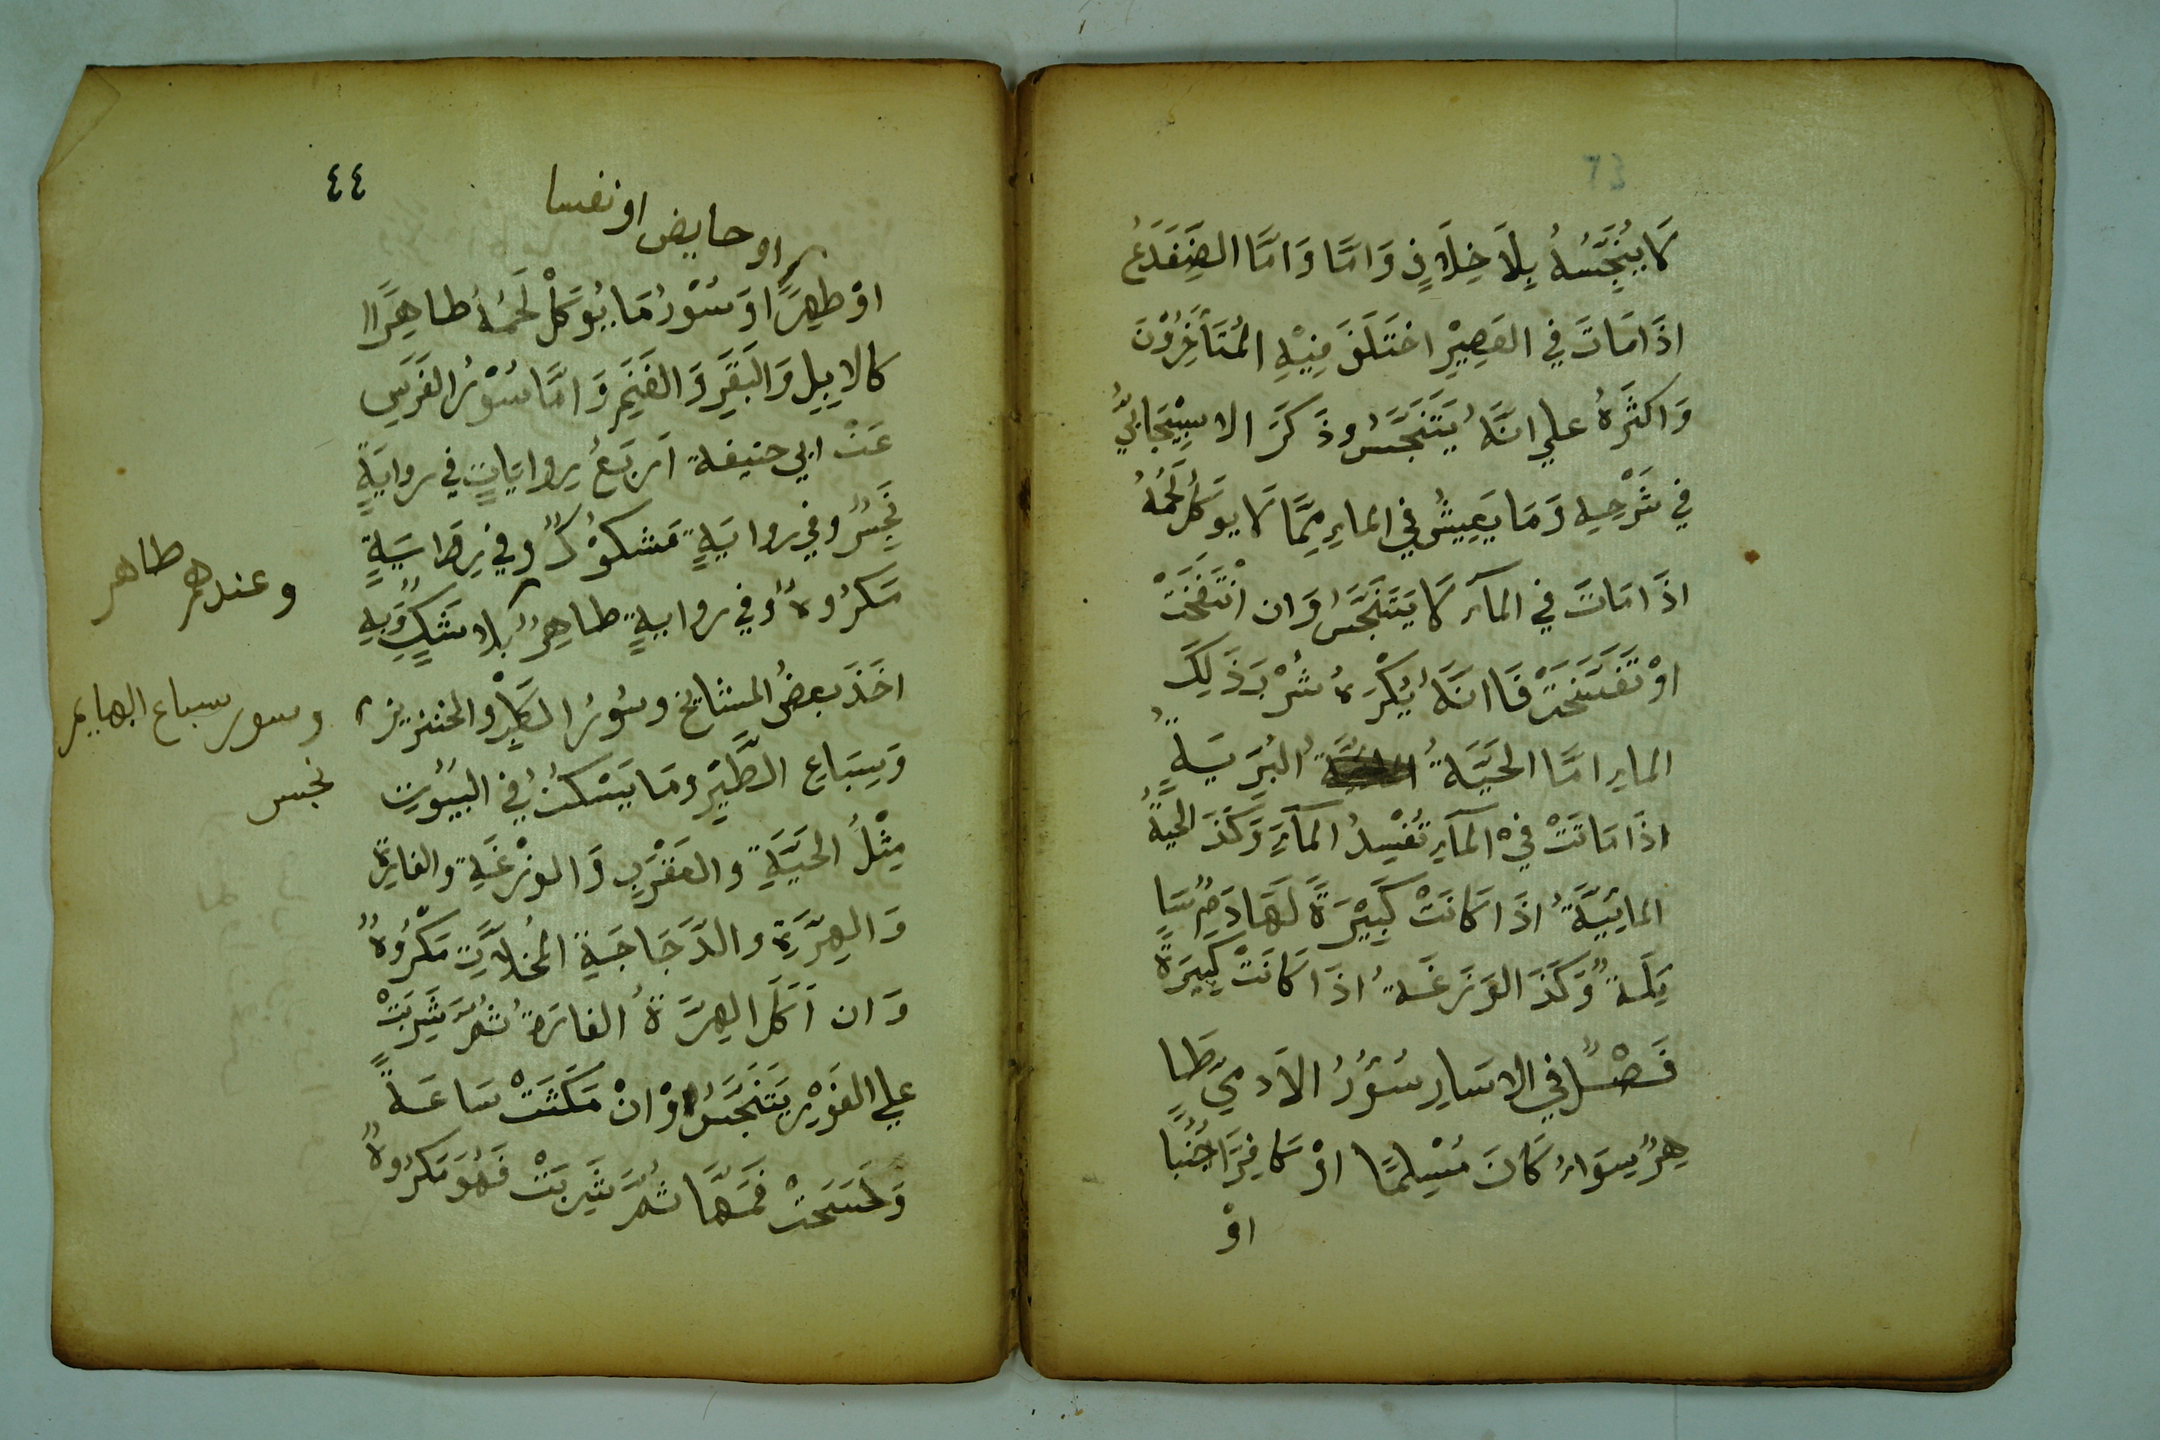 لَا يُنَجِّسُهُ بِلَا خِلَافٍ وَامَّا وَامَّا الضِفْدَعُ
اذَا مَاتَ فِي العَصِيْرِ اخْتَلَفَ فِيْهِ المُتَأَخِرُوْنَ
وَاكثَرُهُ علي انَّهُ يَتَنَجَّسُ وذَكَرَ الاسبِيْجَابِيُّ
في شَرْحِهِ وَمَا يَعِيْشُ فِي الماءِ مِمَّا لَا يوكَلُ لَحْمُهُ
اذَا مَاتَ في المآءِ لَا يَتَنَجَّسُ وَان انْتَفَخَتْ
اوْ تَفَسَّخَتْ فَاانَّهُ يُكْرَهُ شُرْبَ ذَلِكَ
الماءِ امَّا الحَيَّةُ البُرَيَةِ
اذَا مَاتَتْ فيْ المآءِ تُفْسِدُ المآءَ وَكَذَ الحية
المائِيَّةُ اذَا كَانَتْ كَبِيْرَةً لَهَا دَمٌ سَا
يَلَةٌ وَكَذَ الوَزَغَةُ اذَا كَانَتْ كَبِيَرَةً
فَصْلٌ في الاسَارِ سُؤْرُ الاَدمِيِّ طَا
هِرٌ سِوَاءٌ كَانَ مُسْلِمًا اوْ كَافِرًا جُنُبًا
اوْ
٤٤
او حايض او نفسا
اوْ طهِرًا وَسُوْرُ مَا يُوَكَلُ لَحْمُهُ طاهِرًا
كالابِلِ وَالبَقَرِ وَالغَنَمِ وَامَّا سُوْرُ الفَرَسِ
عَنْ ابي حنيفة اَرْبَعُ رِوايَاتٍ في روايَةٍ
نَجِسٌ وفي روايَةٍ مَشكوْكٌ وفي رِوَايَةٍ
مَكرُوهٌ وفي روايةٍ طاهِرٌ بلا شَكٍ وَبِهِ
اخَذَ بعضُ المشايخ وسُورُ الكَلْبِ والخنزيز
وعندهم طاهر
وسور سباع البهايم
نجس
وَسِبَاعِ الطَّيْرِ ومَا يَسْكنُ فِي البيُوتِ
مِثْلُ الحَيَّةِ والعَقْرَبِ وَالوزْغَةِ والفارة
وَالهِرَّةِ والدَّجَاجَةِ المُخلَاتِ مَكْرُوهٌ
وَان اَكَلَ الهِرَّةُ الفارَةَ ثُمَّ شَرِبَتْ
علي الفَوْرِ يَتَنَجَّسُ وْانْ مَكَثَتْ سَاعَةً
وَلَحَسَحَتْ فَمَهَّا ثُمَّ شَرِبَتْ فَهُوَ مَكرُوهٌ